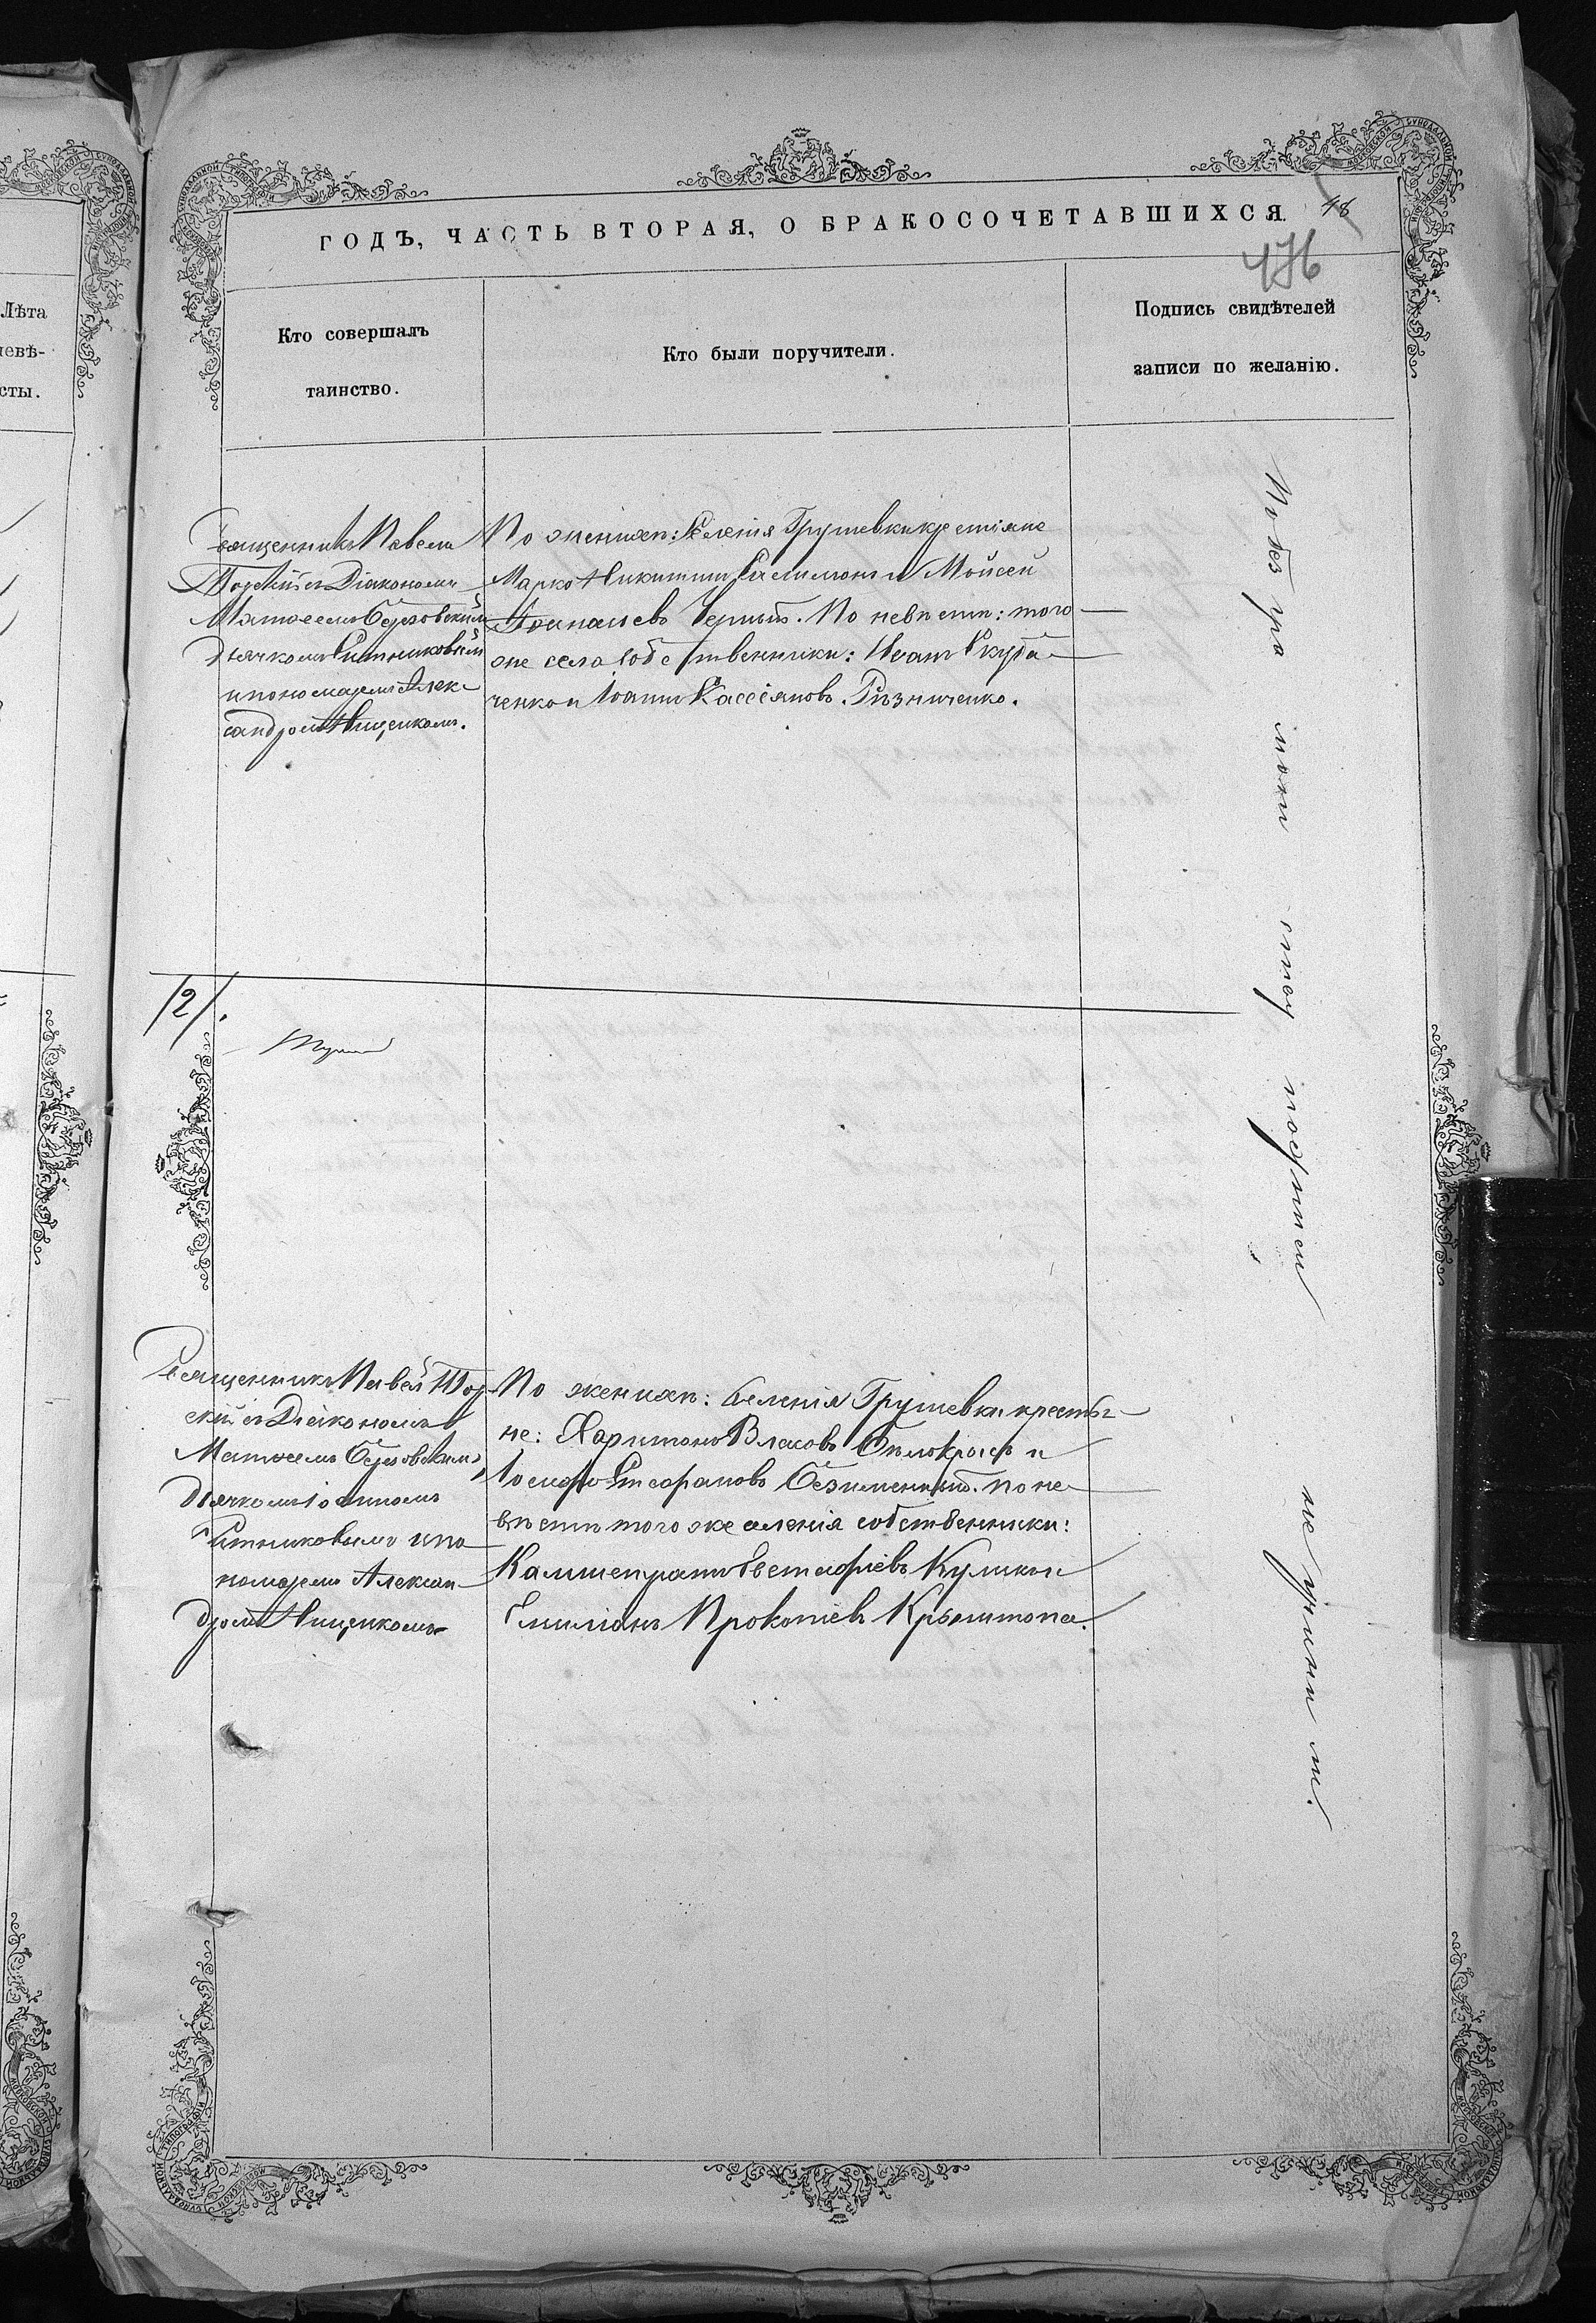 ГОДЪ, ЧАСТЬ ВТОРАЯ, О БРАКОСОЧЕТАВШИХСЯ.
48
476
Лѣта
невѣ-
сты.
Кто совершалъ
таинство.
Кто были поручители.
Подпись свидѣтелей
записи по желанію.
Священникъ Павелъ
Торскій съ Діакономъ
Матѳеемъ Березовскимъ
дьячкомъ Ситниковымъ
и пономаремъ Алек-
сандромъ Нищенкомъ.
По женихѣ: Селенія Грушевки крестьяне
Марко Никитинъ и Мойсей
Аѳанасьевъ Черный. По невѣстѣ: того
же села собственники: Иванъ
ченко и Іоаннъ Кассіяновъ Рѣзниченко.
/2/.
Священникъ Павелъ Тор-
скій съ Діакономъ
Матѳеемъ Березовскимъ,
дьячкомъ Іоанномъ
Ситниковымъ и по-
номаремъ Алексан-
дромъ Нищенкомъ
По женихѣ: Селенія Грушевки крестья-
не: Харитонъ Власовъ и
Іосифъ Безименный. по не-
вѣстѣ того же селенія собственники:
Евстафіевъ Куликъ и
Емиліанъ Прокопіевъ